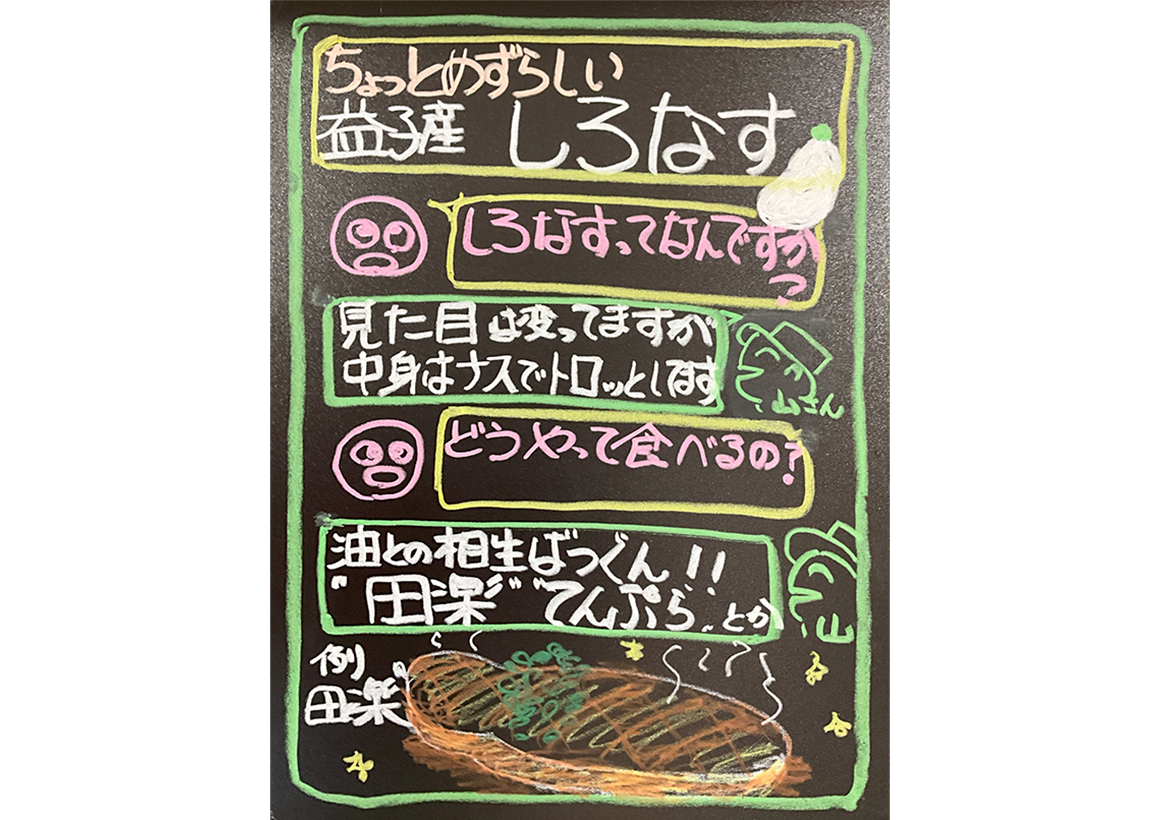 ちょっとめずらしい
益子産 しろなす
しろなすってなんですか
?
見た目は変ってますが
中身はナスでトロッとします
山さん
どうやって食べるの?
油との相生ばつぐん!!
"田楽" "てんぷら" とか
山
例
田楽